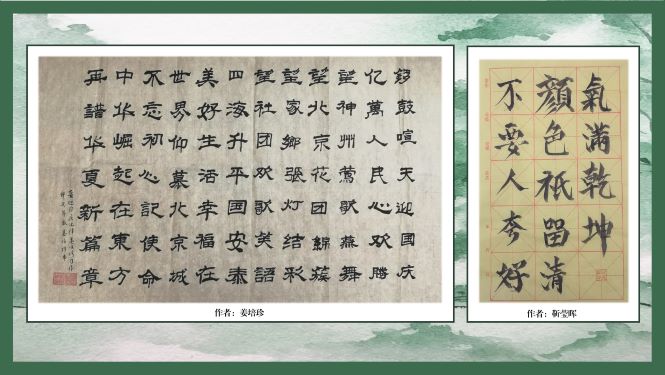 锣鼓喧天迎国庆
亿萬人民心欢腾
望神州莺歌燕舞
望北京花团綿蔟
望家鄉張灯结彩
望社团欢歌笑語
四海升平国安泰
美好生活幸福在
世界仰慕北京城
不忘初心记使命
中华崛起在东方
再譜华夏新篇章
作者：姜培珍
不要人夸好
顏色祇留清
氣滿乾坤
作者：靳莹晖